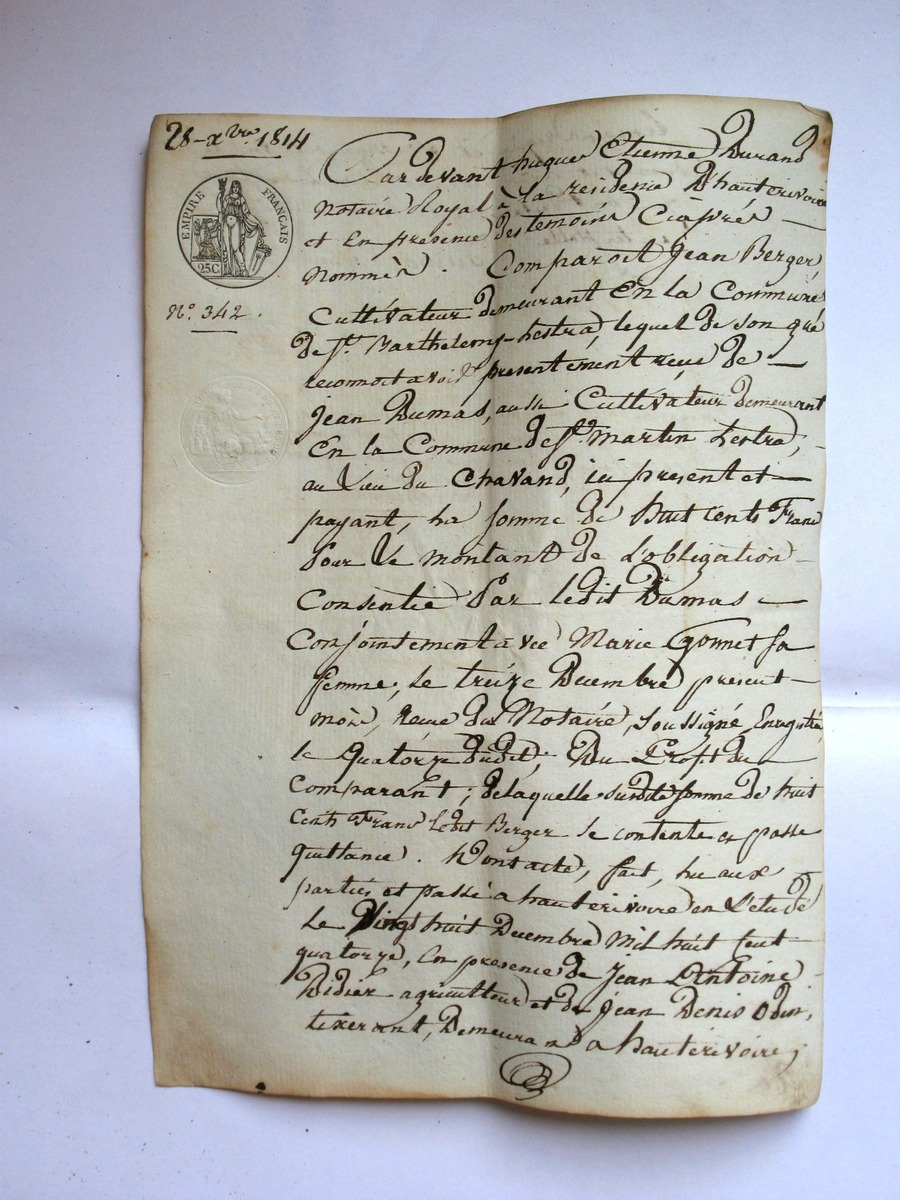 28 - xbre 1814
EMPIRE FRANÇAIS
25C.
No. 342.
Pardevant hugues Etienne Durand
Notaire Royal à la residence D'hauterivoire
et En presence des temoins Ciaprés
Nommés. Comparoit Jean Berger
Cultivateur demeurant En la Commune
de St. Barthelemy-Lestra, lequel de son gré
reconnoit avoir presentement reçu de
Jean Dumas, aussi Cultivateur demeurant
En la Commune de St. Martin Lestra,
au Lieu du Chavand, ici present et
payant, La Somme de Huit Cents Francs
Pour Le montant de L'obligation
Consentie Par Ledit Dumas
Conjointement avec Marie Gonnet Sa
femme, Le treize Decembre present
mois, Reçue du Notaire Soussigné Enregistré
le Quatorze dudit, Au Profit du
Comparant; de laquelle susdite Somme de huit
Cents Francs Ledit Berger se contente en passe
quittance. Dont acte, fait, lu aux
parties et passé a hauterivoire en L'etude
Le Vingt huit Decembre Mil huit Cent
quatorze, En presence de Jean Antoine
Didier agriculteur et de Jean Denis Odin,
tixerant, Demeurand a hauterivoire;